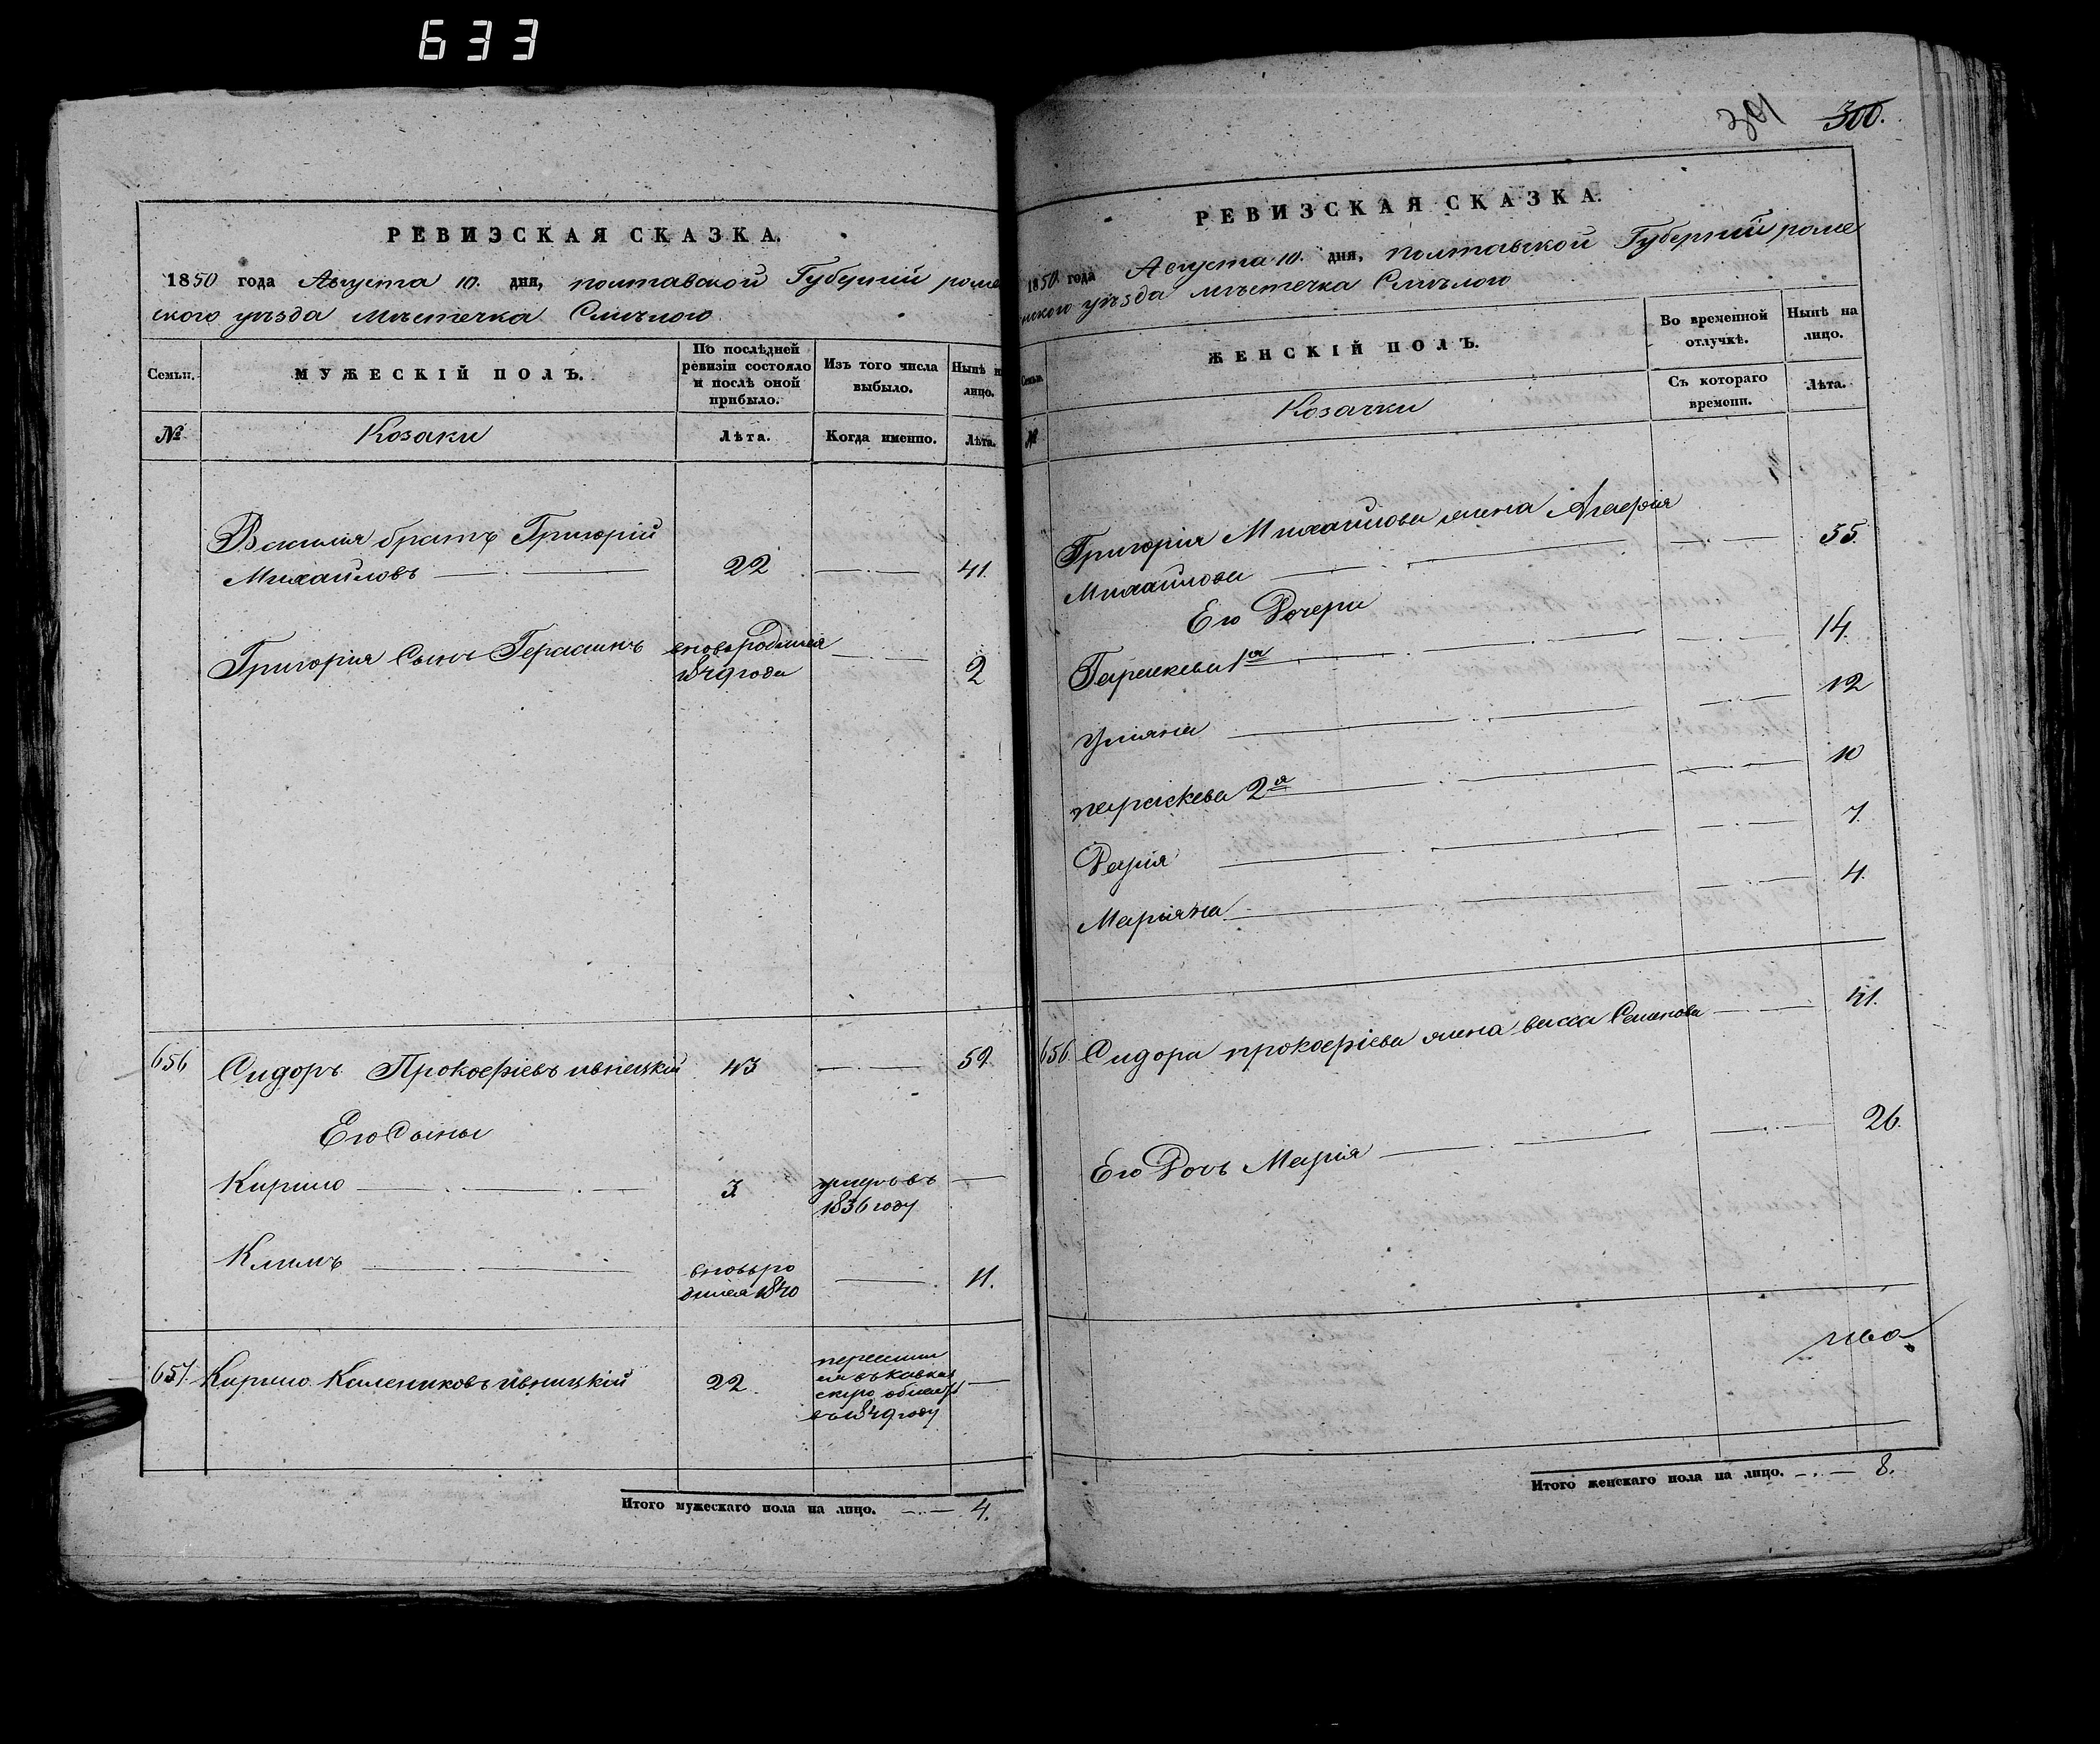 633
РЕВИЗСКАЯ СКАЗКА.
1850 года Августа 10. дня, полтавской Губерніи роме
ского уѣзда Мѣстечка Смѣлого
Семьи.
МУЖЕСКІЙ ПОЛЪ.
По послѣдней
ревизіи состояло
и послѣ оной
прибыло.
Изъ того числа
выбыло.
Нынѣ н
лицо.
№
Козаки
Лѣта.
Когда именно.
Лѣта.
Василія братъ Григорій
Михайловъ 22 41.
Григорія Сынъ Герасимъ вновьродился 2
1849 года
656 Сидоръ Прокофіевъ ивницкій 43 52.
Его Сыны
Кирило 3 умеръ въ
1836 году
Климъ вновьро 11.
дился 1840
657. Кирило Калениковъ ивницкій 22
въ 1849 году
Итого мужескаго пола на лицо. 4.
301 300.
РЕВИЗСКАЯ СКАЗКА.
1850 года Августа 10. дня, полтавской Губерніи роме
нского уѣзда мѣстечка Смѣлого
Семьи.
ЖЕНСКІЙ ПОЛЪ.
Во временной
отлучкѣ.
Нынѣ на
лицо.
Съ котораго
времени.
Лѣта.
№
Козачки
Григорія Михайлова жена Агафія
Михайлова 35.
Его Дочери
Параскева 1я 14.
Уліяна 12
параскева 2я 10
Дарія 7.
Маріяна 4.
656. Сидора прокофіева жена васса Семенова 41.
Его Дочь Марія 26.
Итого женскаго пола на лицо. 8.